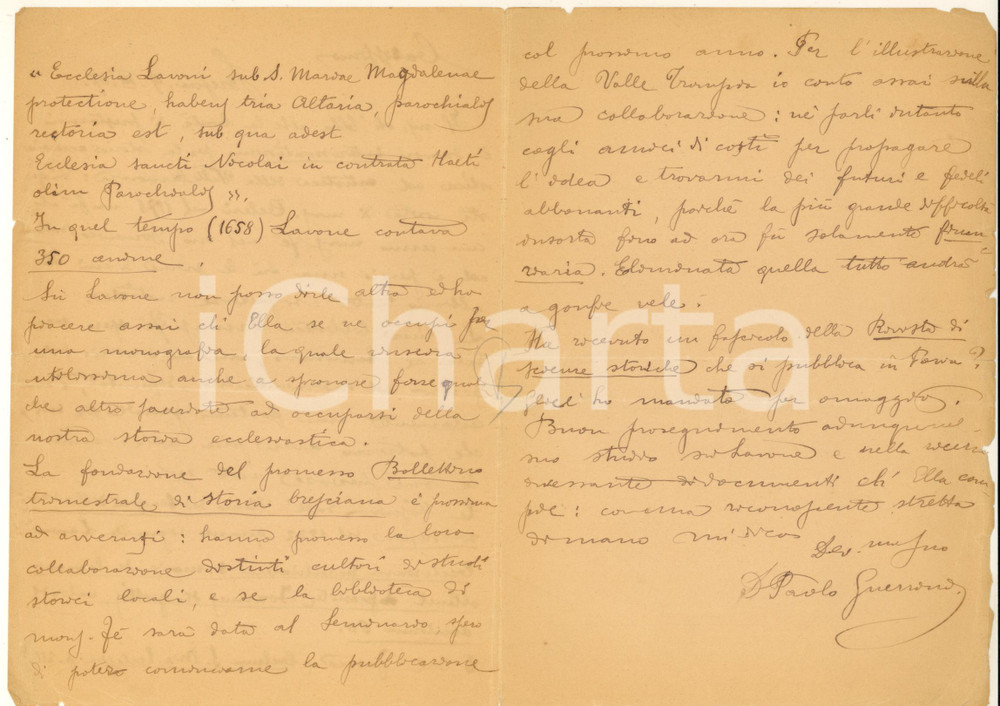 « Ecclesia Lavoni sub S. Mariae Magdalenae
protectione, habens tria Altaria, parochialis
rectoria est, sub qua adest
Ecclesia sancti Nicolai in contrata
olim Parochialis ».
In quel tempo (1658) Lavone contava
350 anime.
Su Lavone non posso dirle altro ed ho
piacere assai ch' Ella se ne occupi per
una monografia, la quale riuscirà
utilissima anche a spronare forse qual
che altro sacerdote ad occuparsi della
nostra storia ecclesiastica.
La fondazione del promesso Bollettino
trimestrale di storia bresciana è prossima
ad avverarsi: hanno promesso la loro
collaborazione distinti cultori di studi
storici locali, e se la biblioteca di
mons. Fè sarà data al Seminario, spero
di poter cominciarne la pubblicazione
col prossimo anno. Per l'illustrazione
della Valle Trompia io conto assai sulla
sua collaborazione: nè parli intanto
cogli amici di costì per propagare
l'idea e trovarmi dei futuri e fedeli
abbonanti, poichè la più grande difficoltà
insorta fino ad ora fu solamente finan
ziaria. Eliminata quella tutto andrà
a gonfie vele.
Ha ricevuto un fascicolo della Rivista di
scienze storiche che si pubblica in Pavia?
Gliel' ho mandata per omaggio.
Buon proseguimento adunque nel
suo studio su Lavone e nella ricerca
di documenti ch' Ella com
pie: con una riconoscente stretta
di mano mi dico
Dev. mo suo
D Paolo Guerrini
iCharta